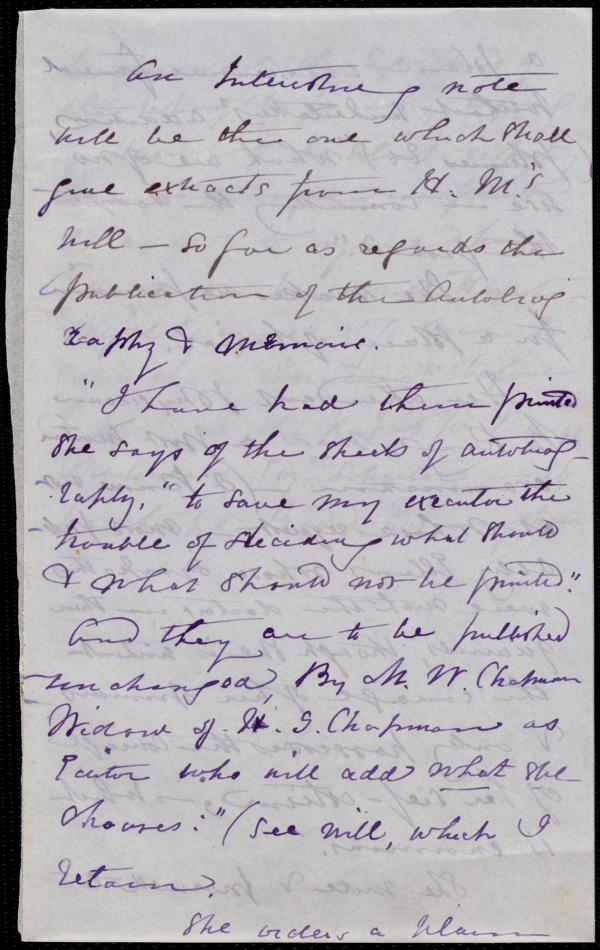 An Interesting note
will be the one which shall
give extracts from H. M.'s
will — so far as regards the
publication of the Autobiog
raphy & Memoir.
"I have had them printed
she says of the sheets of autobiog-
raphy, "to save my executor the
trouble of deciding what should
& what should not be printed".
And they are to be published
unchanged, By M. W. Chapman
Widow of H. G. Chapman as
Editor who will add what she
chooses:" (See will, which I
retain.
She orders a plain